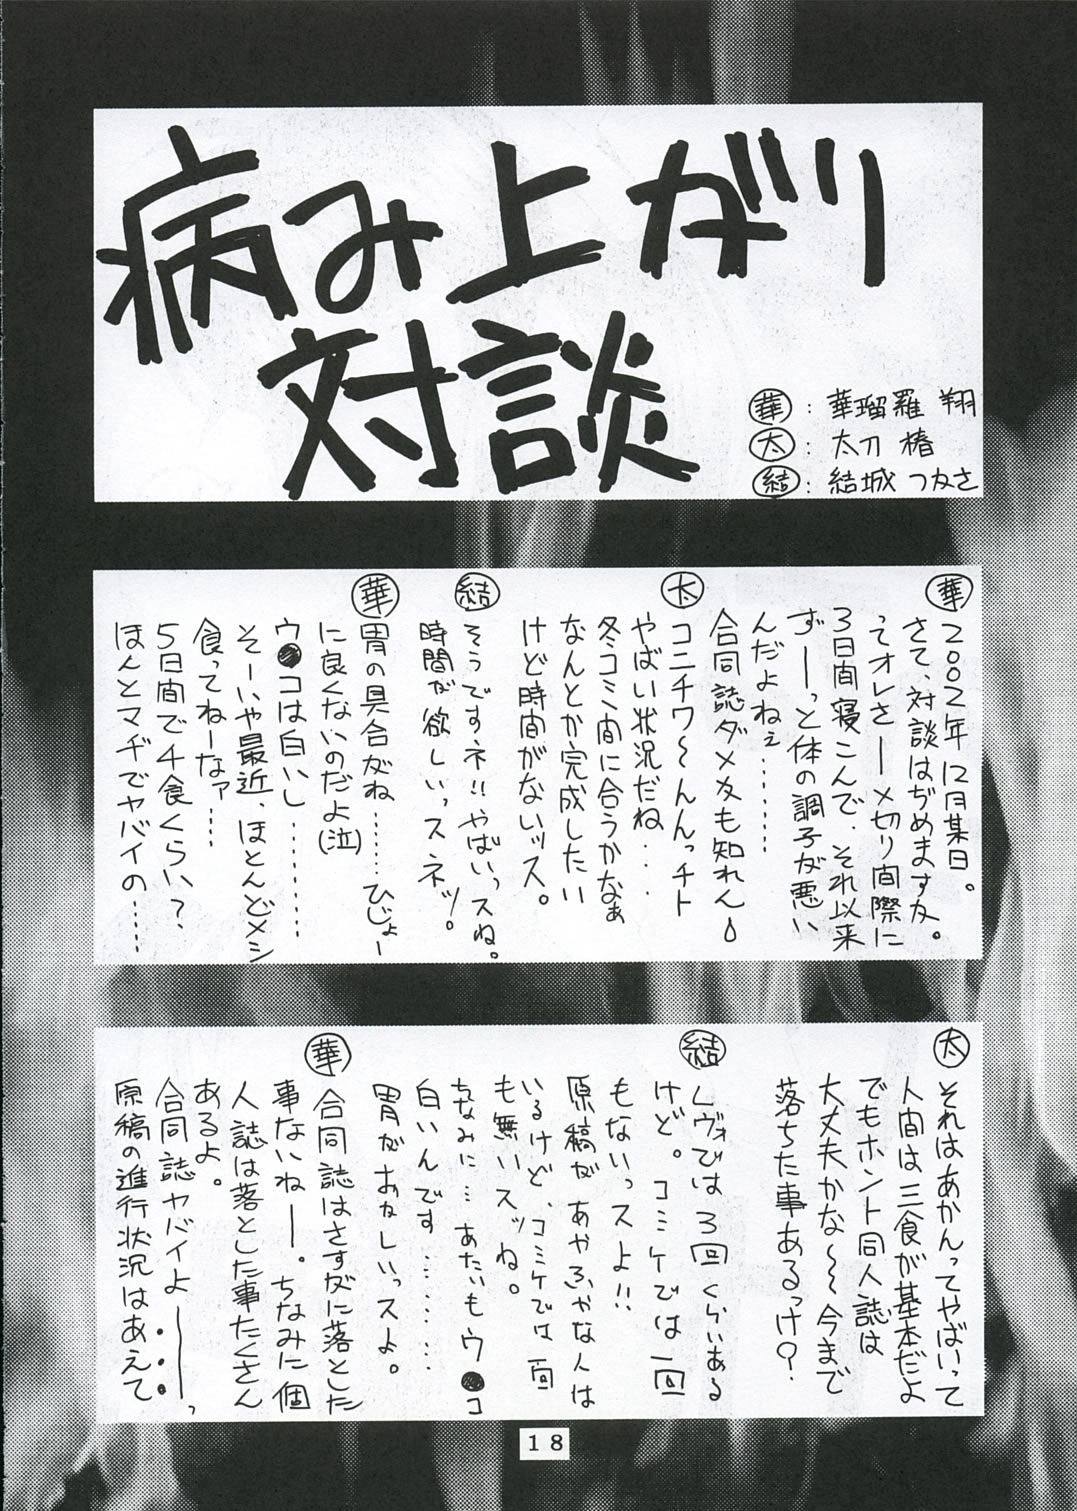 病み上がり
対談
華：華瑠羅 翔
太：太刀 椿
結：結城 つかさ
華
2002年12月某日。
さて、対談はぢめますか。
ってオレさー〆切り間際に
3日間寝こんで、それ以来
ずーーっと体の調子が悪い
んだよねぇ………
合同誌ダメかも知れん
太
コニチワ〜んんっチト
やばい状況だね・・・
冬コミ間に合うかなぁ
なんとか完成したい
けど時間がないッス。
結
そうですネ!!やばいっスね。
時間が欲しいっスネッ。
華
胃の具合がね……ひじょー
に良くないのだよ(泣)
ウ●コは白いし…………
そーいや最近、ほとんどメシ
食ってねーなァ……
5日間で4食くらい？
ほんとマヂでヤバイの……
太
それはあかんってやばいって
人間は三食が基本だよ
でもホント同人誌は
大丈夫かな〜〜今まで
落ちた事あるっけ？
結
レヴォでは3回くらいある
けど。コミケでは一回
もないっスよ!!
原稿が あやふやな人は
いるけど、コミケでは一回
も無いスッね。
ちなみに…あたいもウ●コ
白いんです…………
胃がおかしいっスよ。
華
合同誌はさすがに落とした
事ないねー。ちなみに個
人誌は落とした事たくさん
あるよ。
合同誌ヤバイよーーーっ
原稿の進行状況はあえて
18